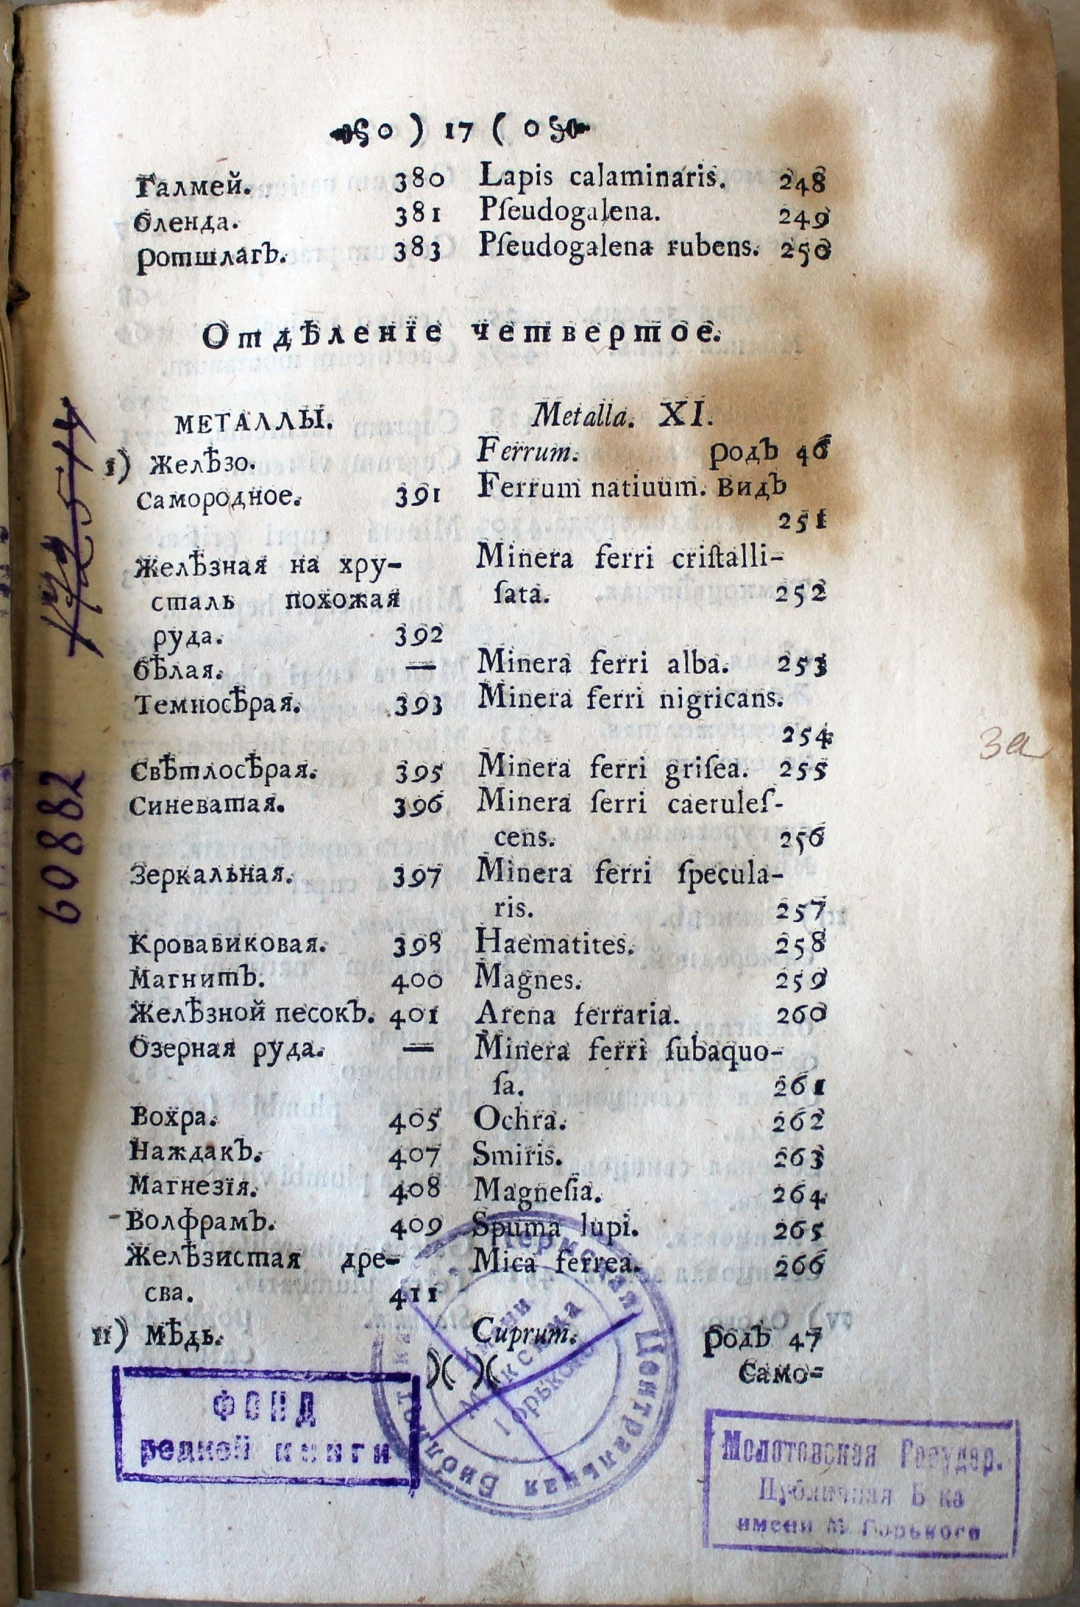 0 ) 17 ( 0
Галмей. 380 Lapis calaminaris. 248
бленда. 381 Pſeudogalena. 249
ротшлагъ. 383 Pſeudogalena rubens. 250
Отдѣленїе четвертое.
МЕТАЛЛЫ. Metalla. XI.
1) Желѣзо. Ferrum. родъ 46
Самородное. 391 Ferrum natiuum. Видъ
251
Желѣзная на хру- Minera ferri criſtalli-
сталь похожая ſata. 252
руда. 392
бѣлая. — Minera ferri alba. 253
Темносѣрая. 393 Minera ferri nigricans.
254
Свѣтлосѣрая. 395 Minera ferri griſea. 255
Синеватая. 396 Minera ferri caeruleſ-
cens. 256
Зеркальная. 397 Minera ferri ſpecula-
ris. 257
Кровавиковая. 398 Haematites. 258
Магнитъ. 400 Magnes. 259
Желѣзной песокъ. 401 Arena ferraria. 260
Озерная руда. — Minera ferri ſubaquo-
ſa. 261
Вохра. 405 Ochra. 262
Наждакъ. 407 Smiris. 263
Магнезїя. 408 Magneſia. 264
Волфрамъ. 409 Spuma lupi. 265
Желѣзистая дре- Mica ferrea. 266
сва. 411
11) Мѣдь. Cuprum. родъ 47
Само-
ФОНД
редкой книги
Пермская Центральная Библиотека
имени
Максима
Горького
Молотовская Государ.
Публичная Б-ка
имени М. Горького
60882
за